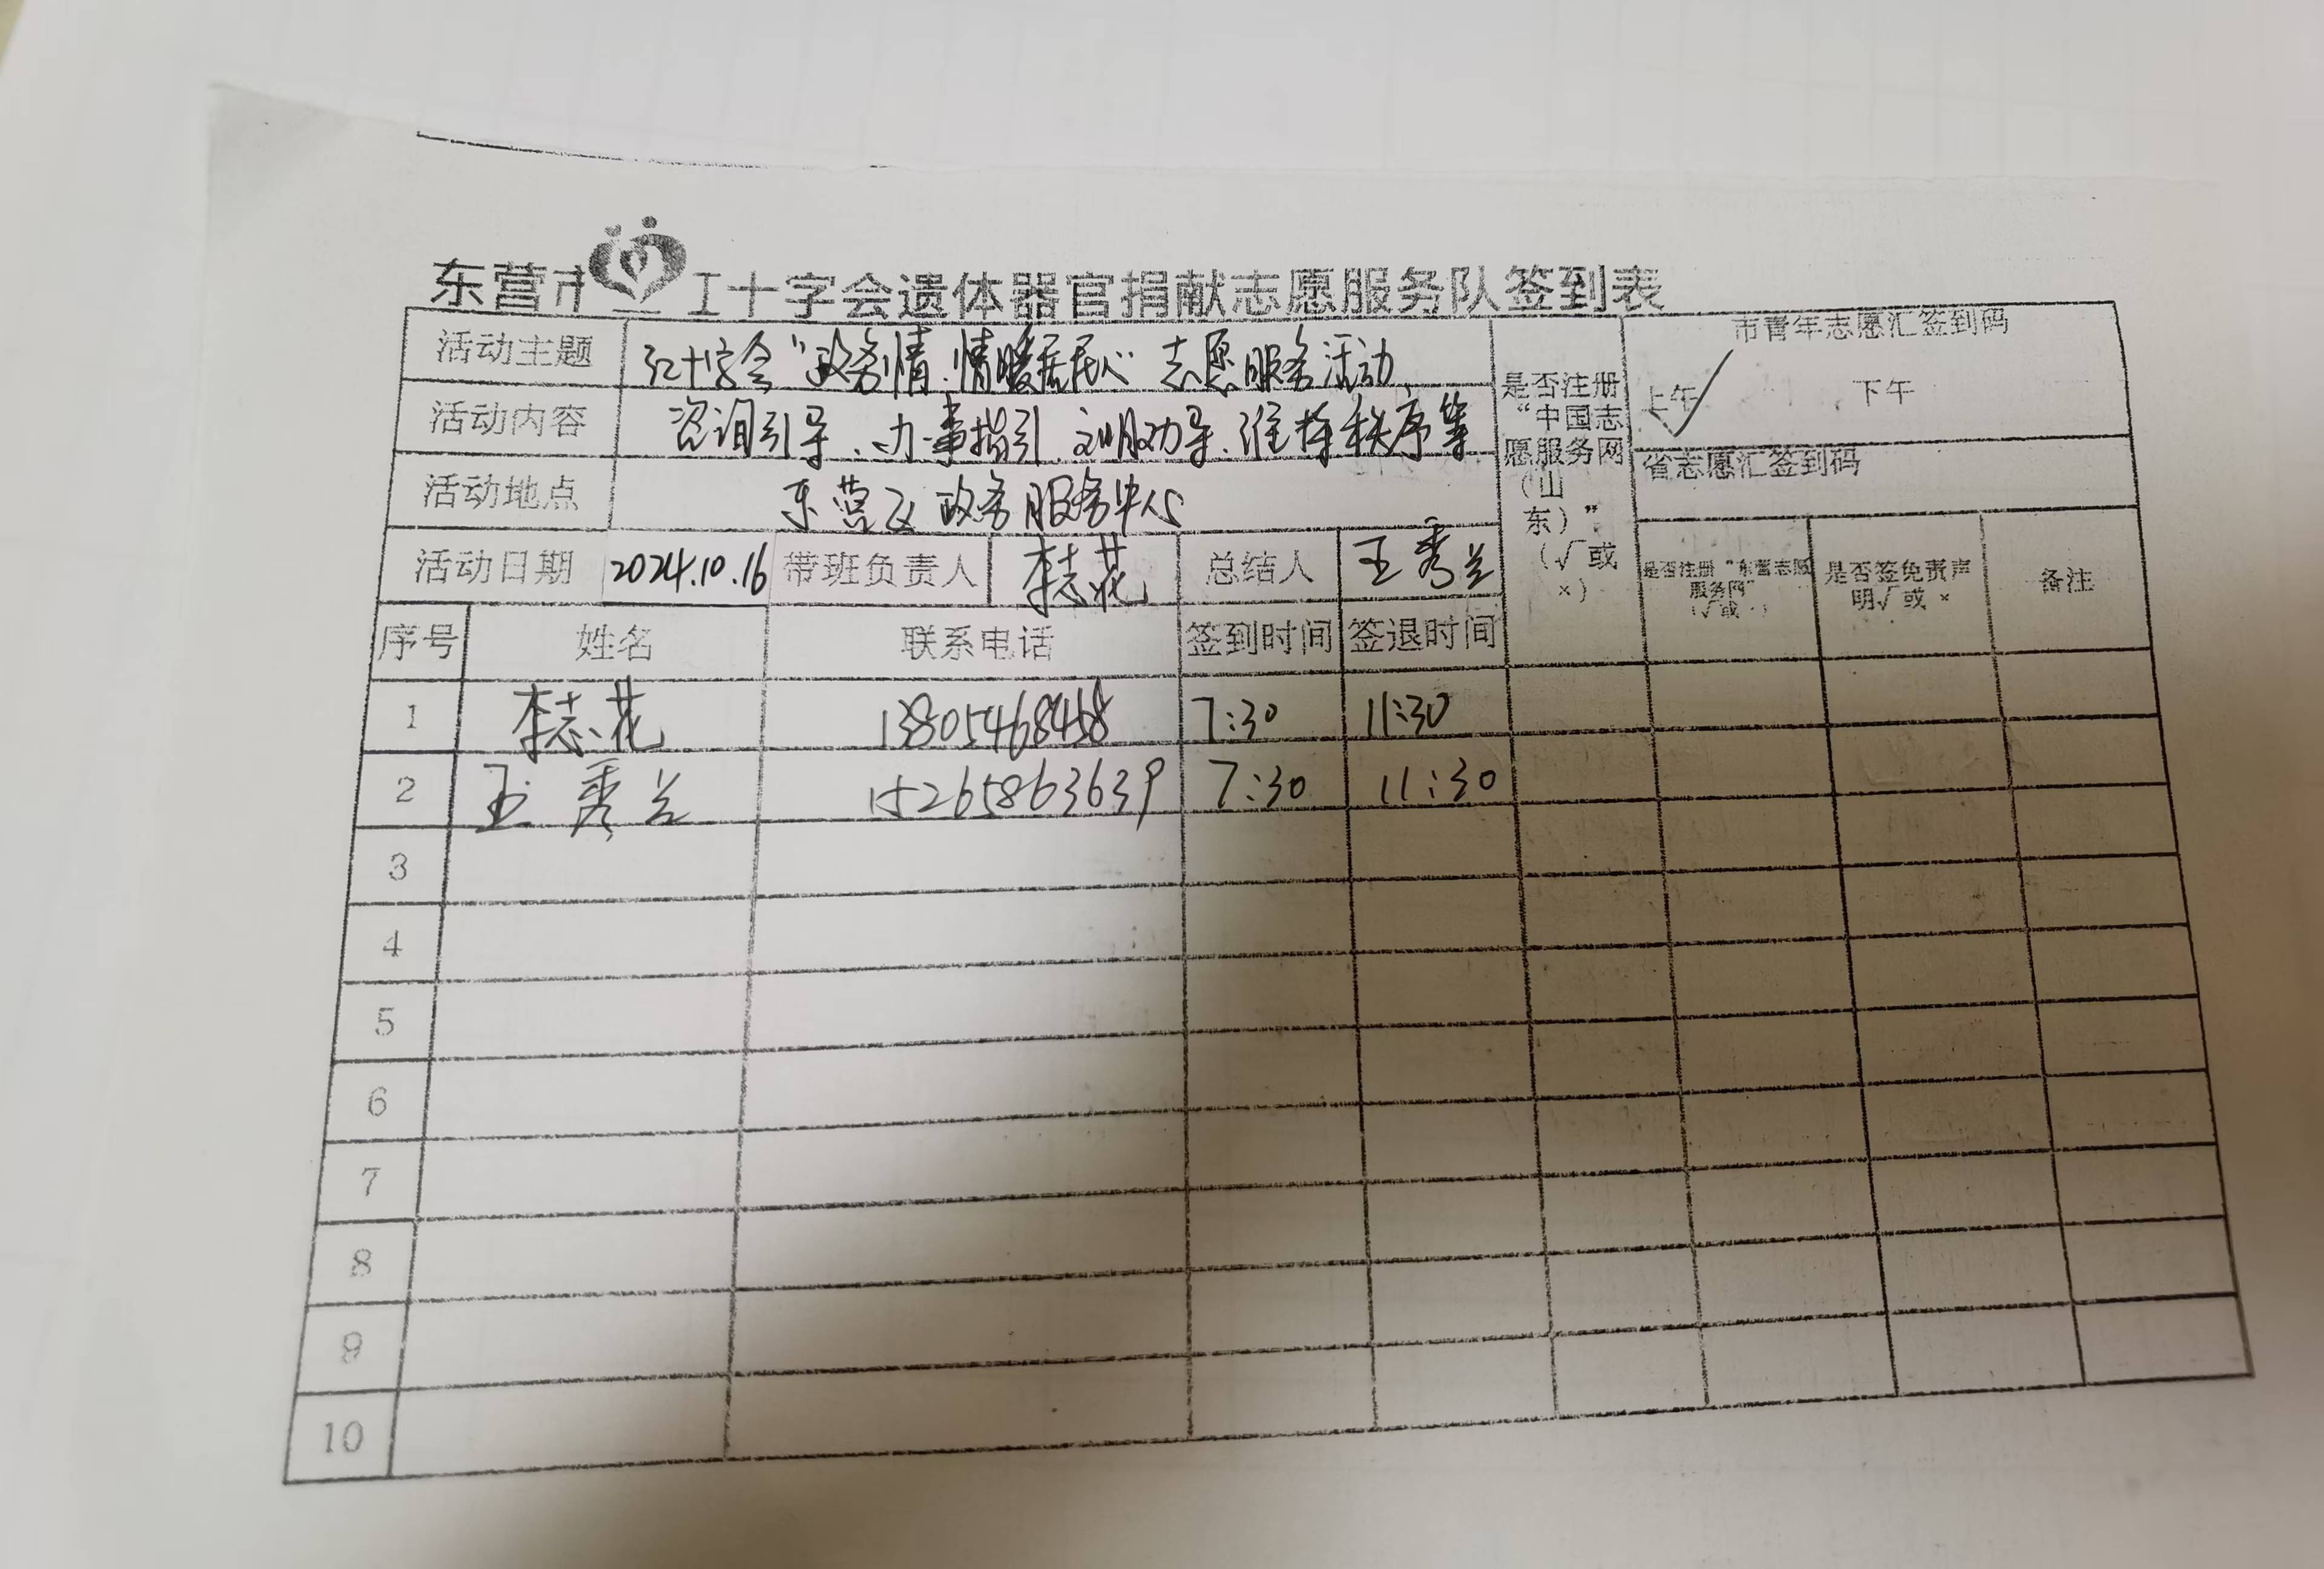 东营市红十字会遗体器官捐献志愿服务队签到表
活动主题 红十字会“政务情、情暖居民心”志愿服务活动
活动内容 咨询引导、办事指引、文明劝导、维持秩序等
活动地点 东营区政务服务中心
活动日期 2024.10.16 带班负责人 李志花 总结人 王秀兰
是否注册“中国志愿服务网（山东）”（√或×）
市青年志愿汇签到码
上午√ 下午
省志愿汇签到码
是否注册“东营志愿服务网”（√或×） 是否签免责声明√或× 备注
序号 姓名 联系电话 签到时间 签退时间
1 李志花 13805468458 7:30 11:30
2 王秀兰 15265863639 7:30 11:30
3
4
5
6
7
8
9
10